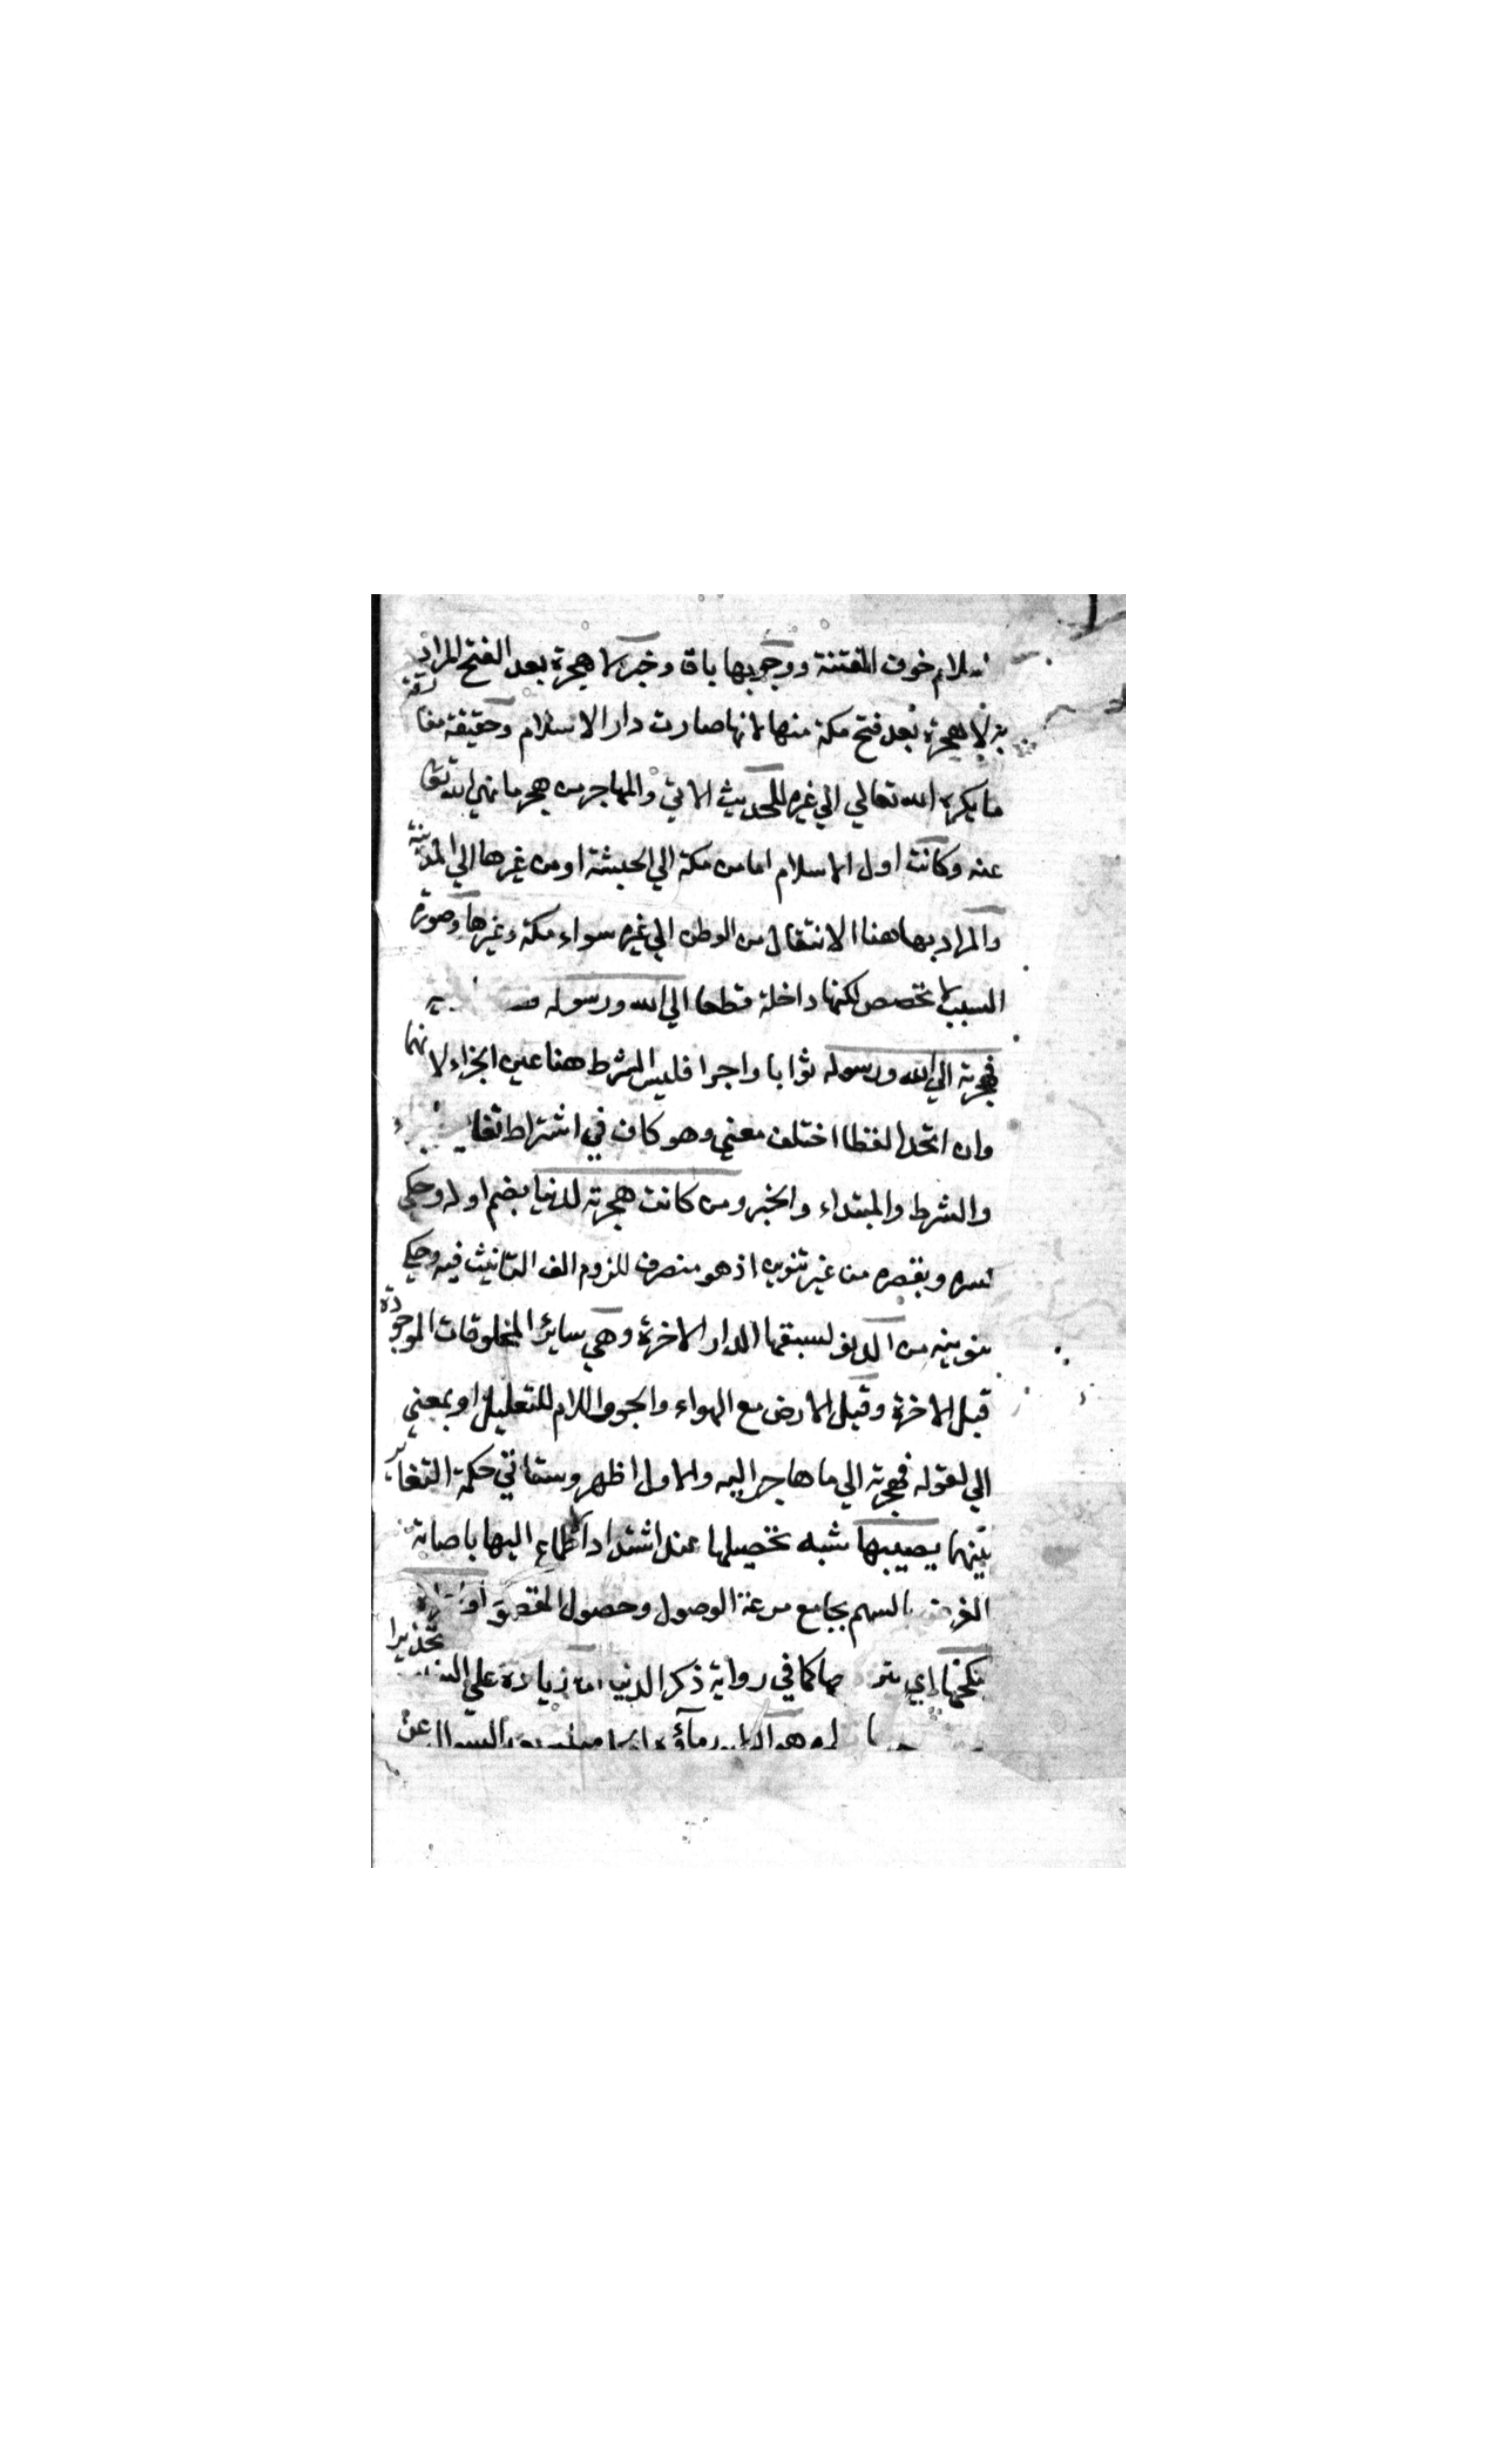 خوف الفتنة ووجوبها باق وخبر لا هجرة بعد الفتح المراد
به لا هجرة بعد فتح مكة منها لانها صارت دار الاسلام وحقيقة مفارقة
ما يكره الله تعالي الي غيره للحديث الاتي والمهاجر من هجر ما نهي الله تعا
عنه وكانت اول الاسلام اما من مكة الي الحبشة او من غيرها الي المدينة
والمراد بها هنا الانتقال من الوطن الي غيره سواء مكة وغيرها وصورة
السبب لا تخصص لكنها داخلة قطعا الي الله ورسوله
فهجرته الي الله ورسوله ثوابا واجرا فليس الشرط هنا عين الجزاء لانهما
وان اتحدا لفظا اختلف معني وهو كاف في اشتراط
والشرط والمبتداء والخبر ومن كانت هجرته لدنيا بضم اوله وحكي
كسره وبقصره من غير تنوين اذ هو منصرف للزوم الف التانيث فيه وحكي
تنوينه من الدنو لسبقها الدار الاخرة وهي سائر المخلوقات الموجودة
قبل الاخرة وقيل الارض مع الهواء والجو واللام للتعليل او بمعني
الي لقوله فهجرته الي ما هاجر اليه والاول اظهر وستاتي حكمة التغاير
بينهما يصيبها شبه تحصيلها عند اشتداد اطماع اليها باصابة
بالسهم بجامع سرعة الوصول وحصول المقصود
ينكحها اي كما في رواية ذكر الدنيا زيادة علي تحذيرا
عن